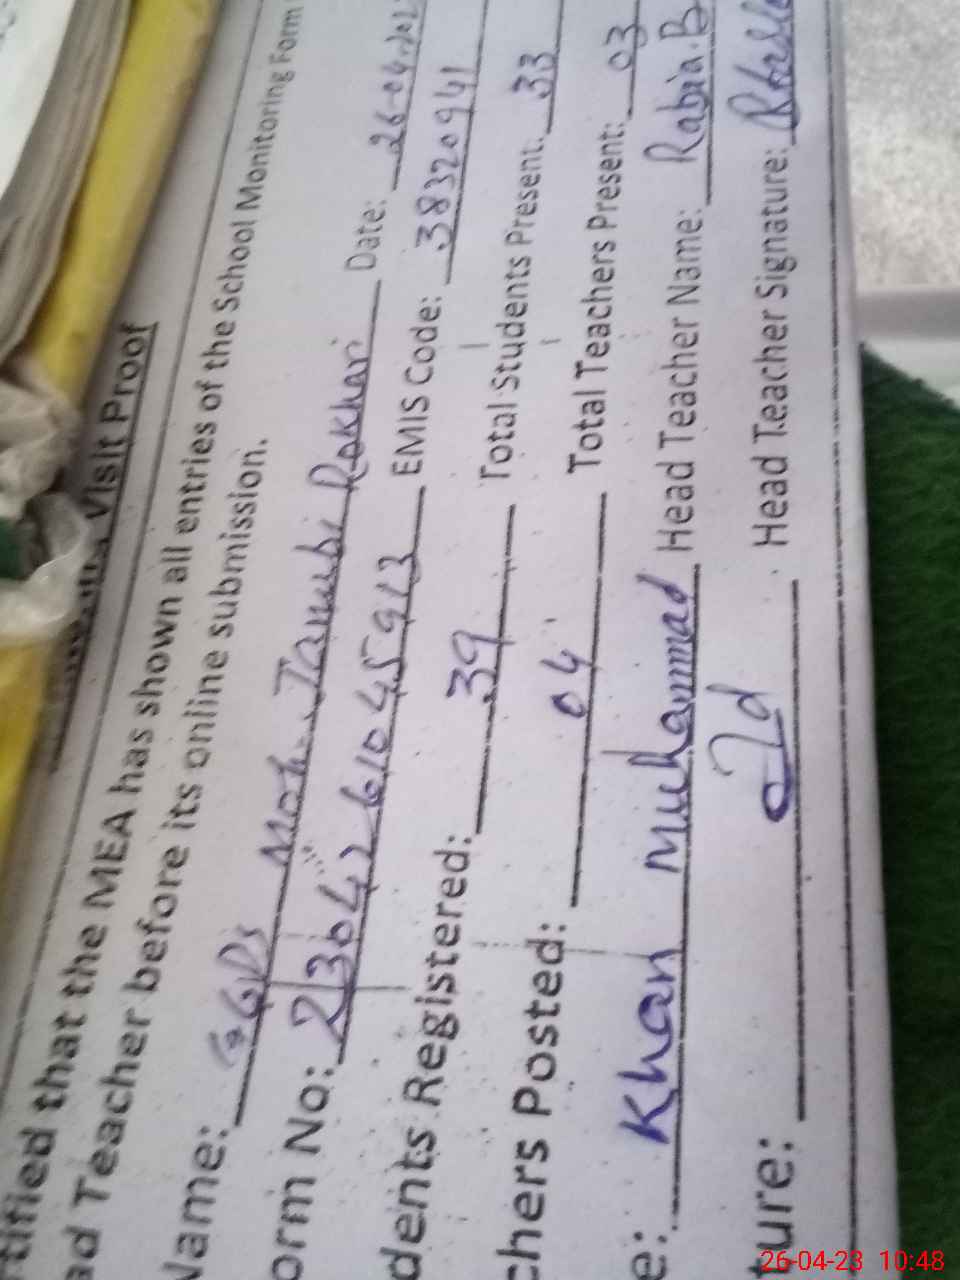 Visit Proof
tified that the MEA has shown all entries of the School Monitoring Form
ad Teacher before its online submission.
Name: GGPS Moh. Janubi Rokhari Date: 26-04-202
orm No: 2304261045913 EMIS Code: 38320941
dents Registered: 39 Total Students Present: 33
chers Posted: 04 Total Teachers Present: 03
e: Khan Muhammad Head Teacher Name: Rabia.B
ture: Head Teacher Signature:
26-04-23 10:48